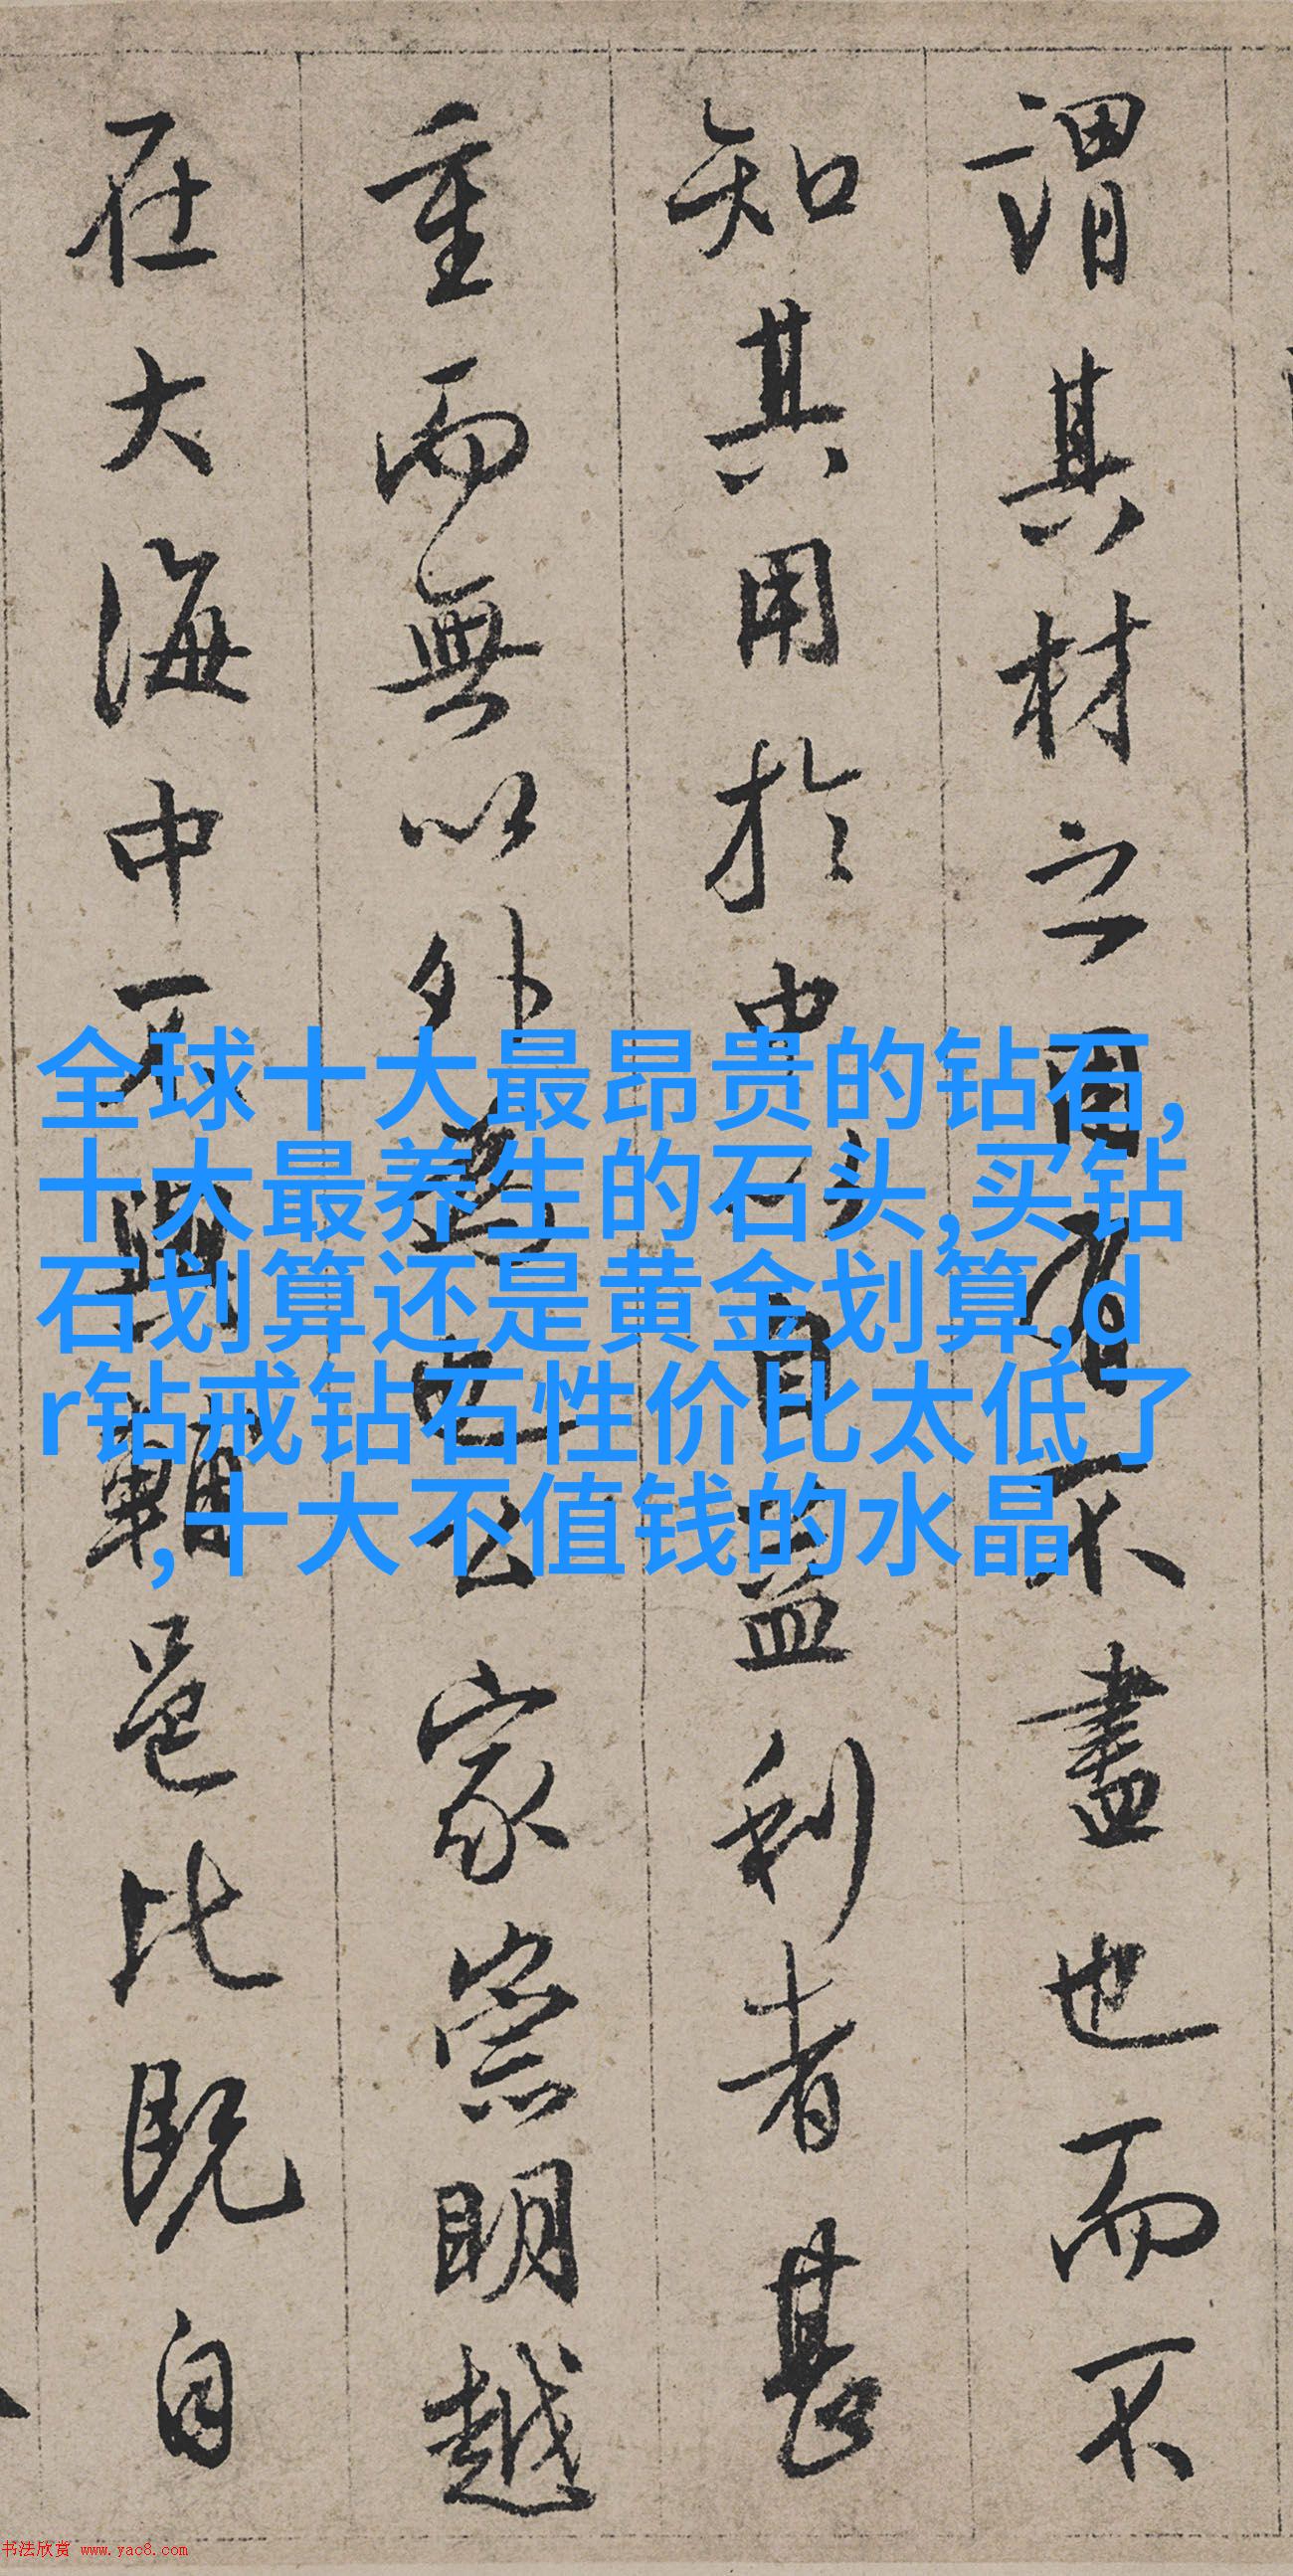 謂其材之用有不盡也而不
知其用於中以自益利者甚
重而無以外為也公家崇明越
在大海中不與輔邑比既自
全球十大最昂贵的钻石,
十大最养生的石头,买钻
石划算还是黄金划算,d
r钻戒钻石性价比太低了
,十大不值钱的水晶
书法欣赏 www.yac8.com